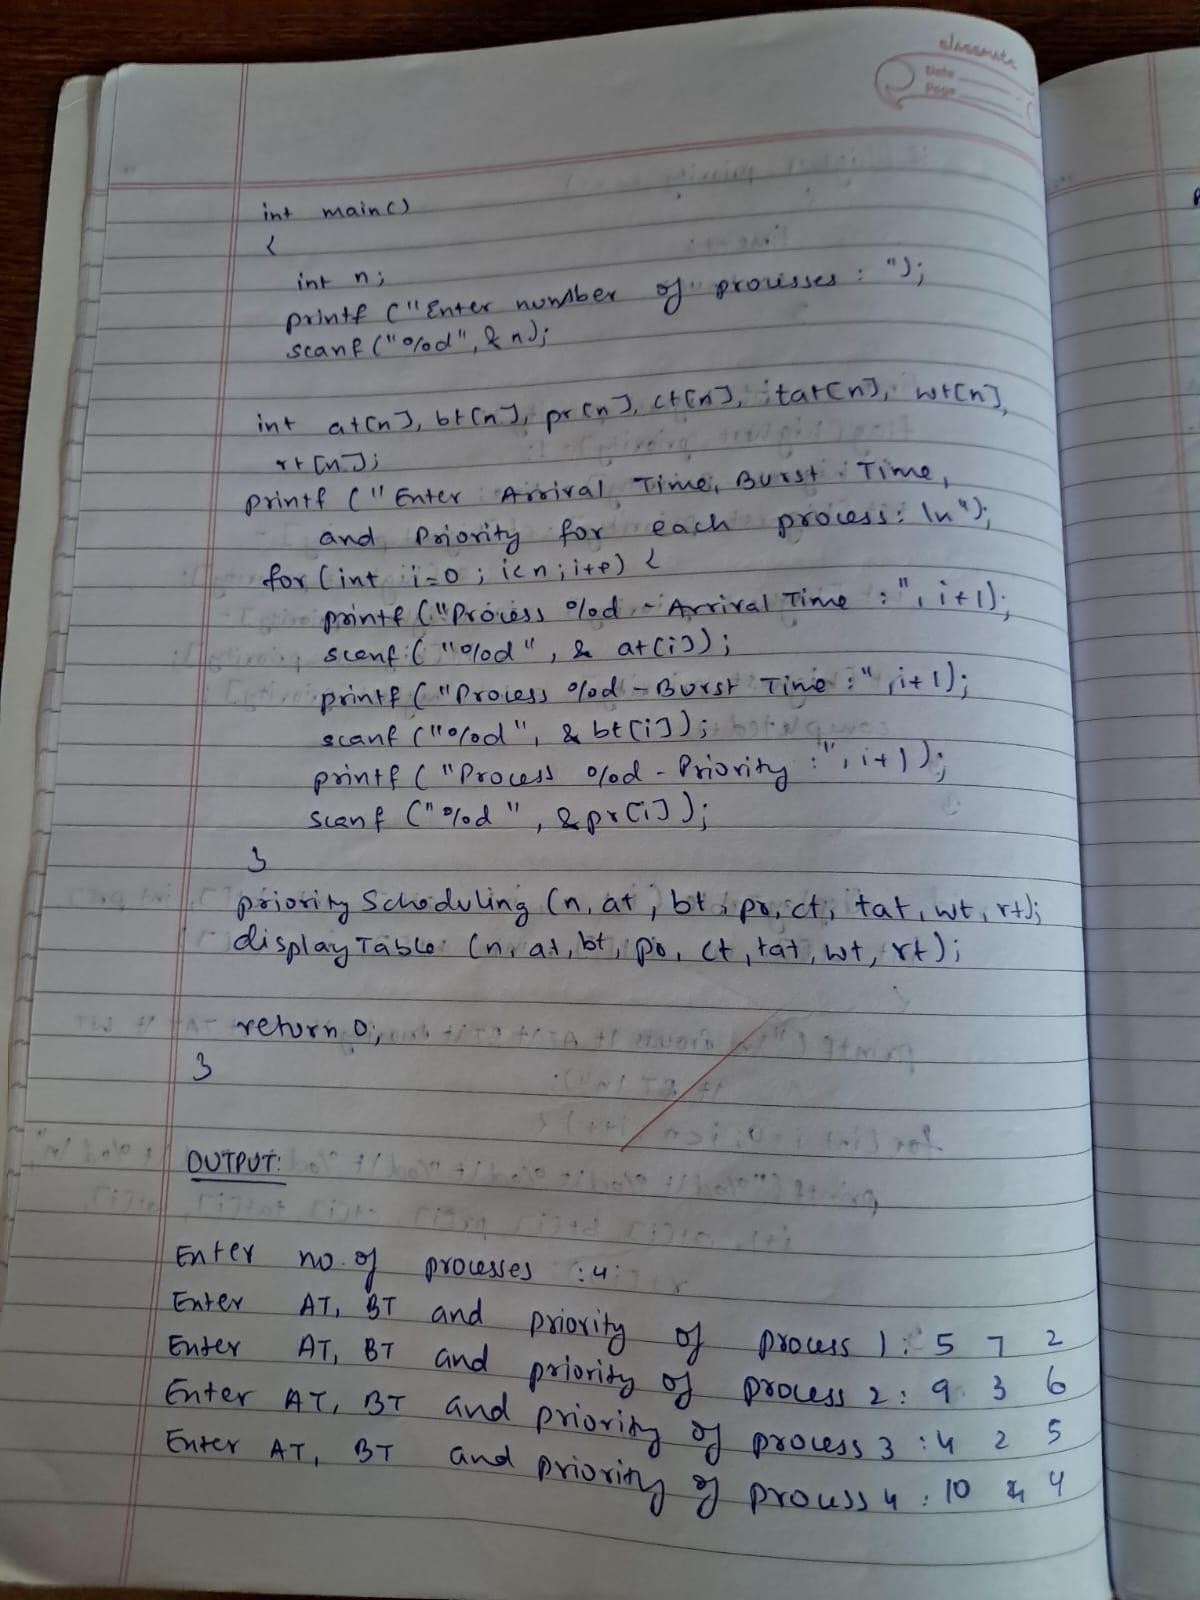 classmate
Date
Page
int main()
{
int n;
printf ("Enter number of processes : ");
scanf ("%d", & n);
int at[n], bt[n], pr[n], ct[n], tat[n], wt[n],
rt[n];
printf ("Enter Arrival Time, Burst Time,
and Priority for each process: \n");
for (int i=0 ; i<n ; i++) {
printf ("Process %d - Arrival Time : ", i+1);
scanf ( "%d" , & at[i]);
printf ("Process %d - Burst Time : ", i+1);
scanf ("%d", & bt[i]);
printf ( "Process %d - Priority : ", i+1);
scanf ("%d ", &pr[i]);
}
priority Scheduling (n, at , bt, pr, ct, tat, wt, rt);
display Table (n, at, bt, pr, ct, tat, wt, rt);
return 0;
}
OUTPUT:
Enter no. of processes : 4
Enter AT, BT and priority of process 1 : 5 7 2
Enter AT, BT and priority of process 2 : 9 3 6
Enter AT, BT and priority of process 3 : 4 2 5
Enter AT, BT and priority of process 4 : 10 4